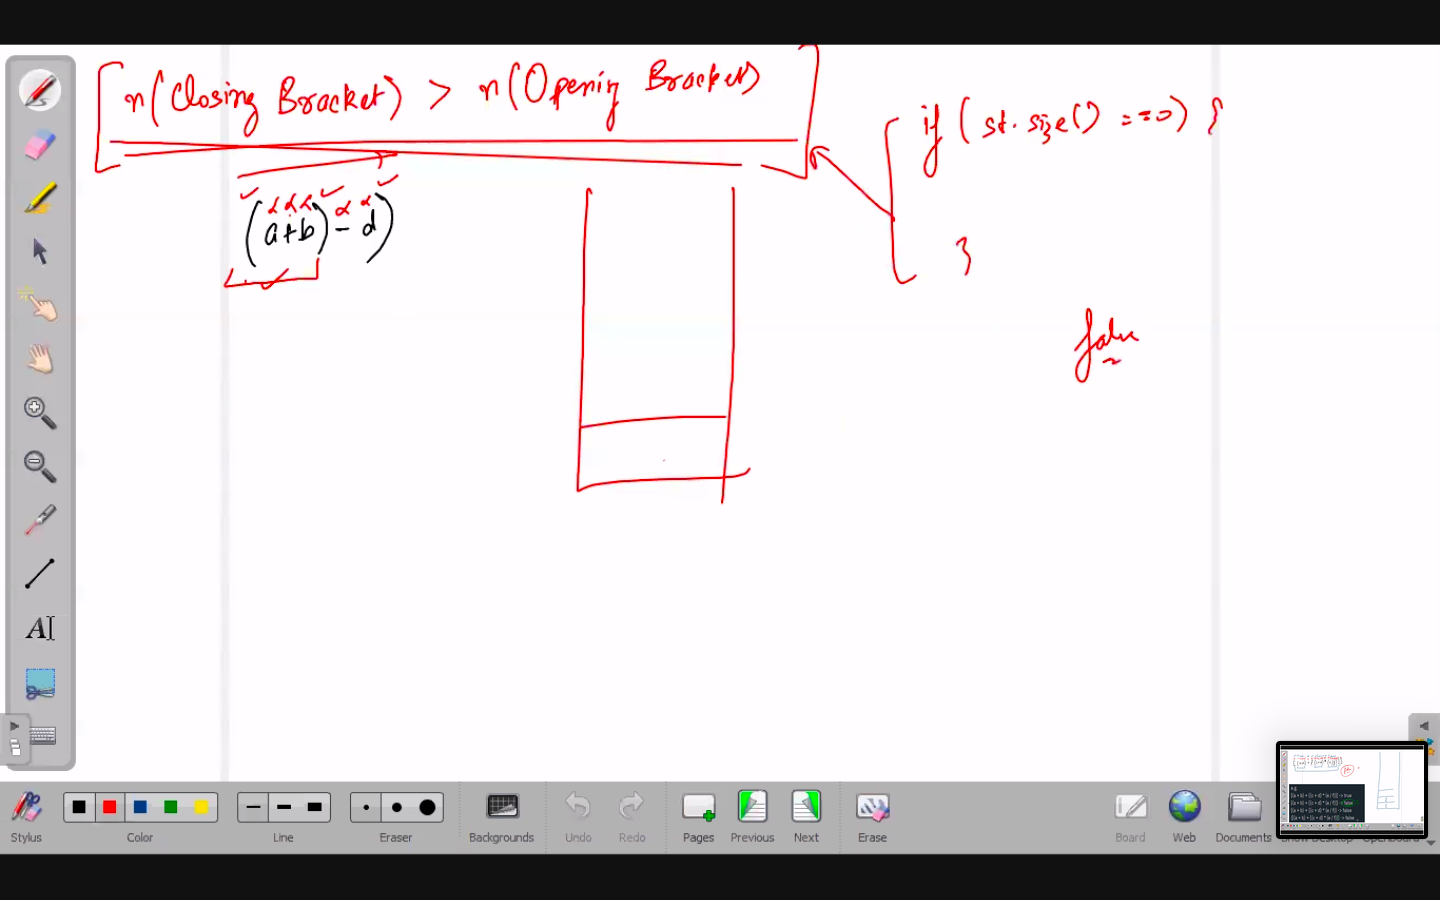 n(Closing Bracket) > n(Opening Bracket)
if ( st.size() ==0) {
}
(a+b)-d)
false
Stylus
Color
Line
Eraser
Backgrounds
Undo
Redo
Pages
Previous
Next
Erase
Board
Web
Documents